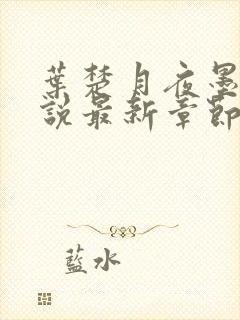 葉楚月夜墨
說最新章節
藍水